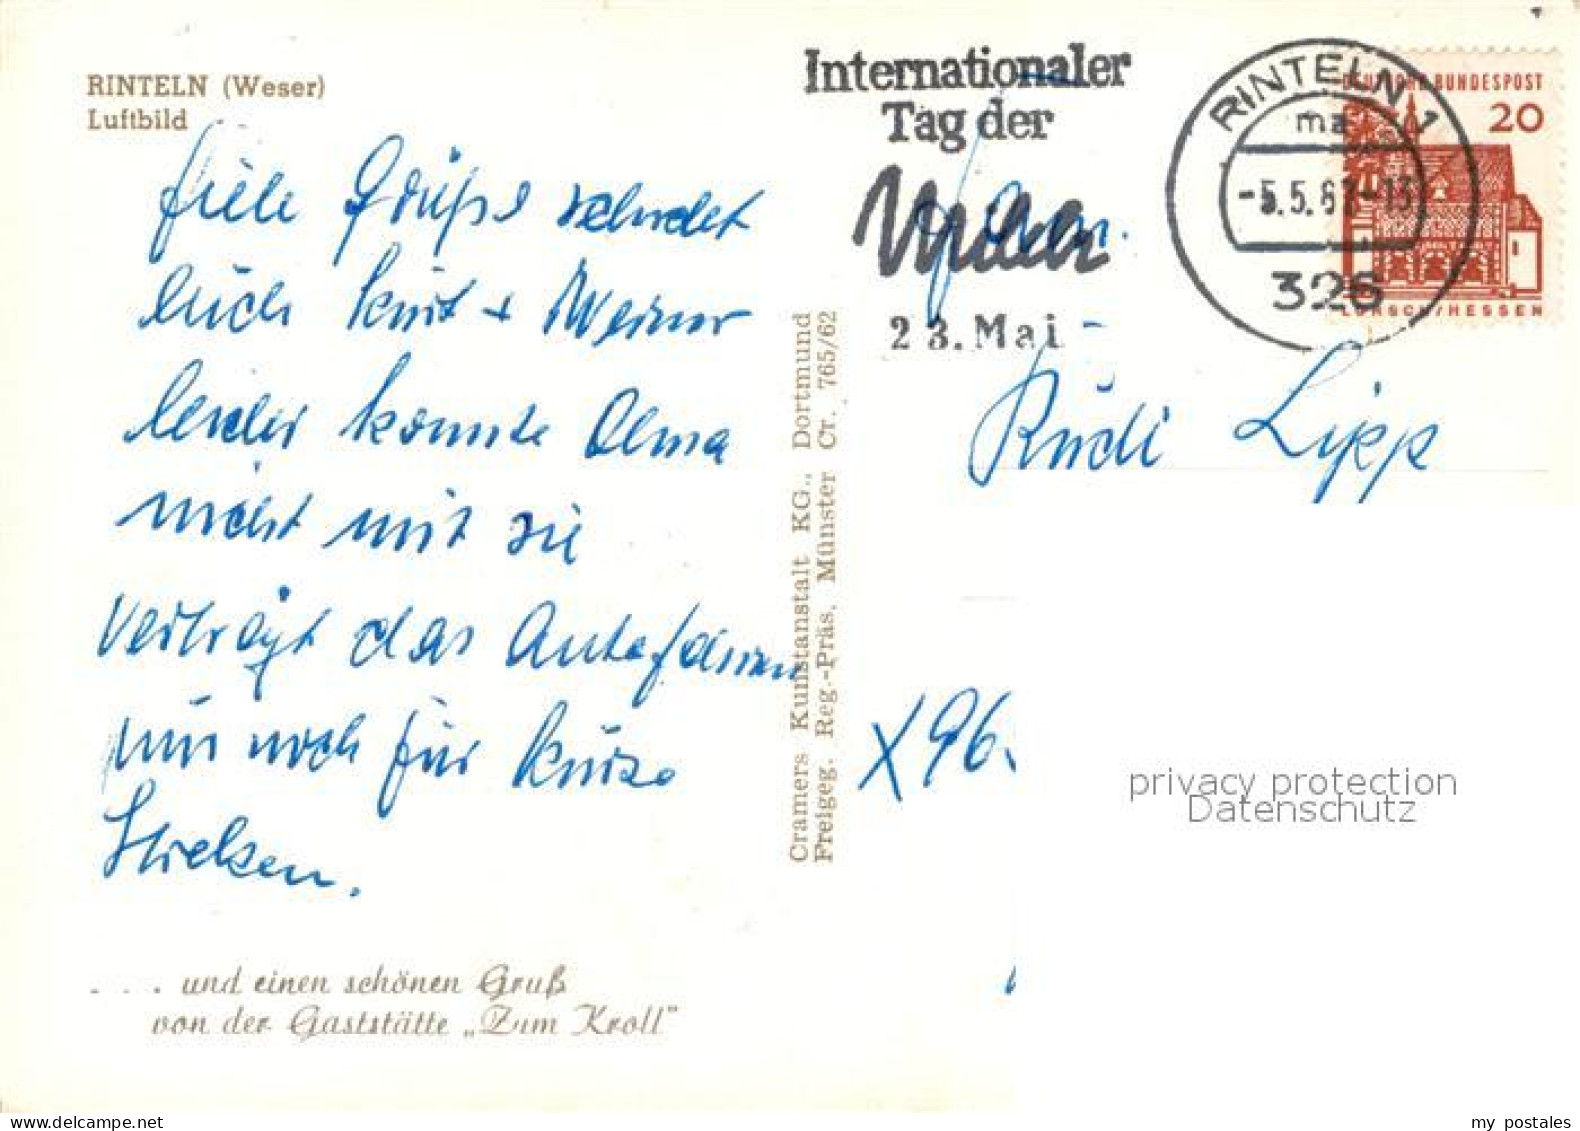 RINTELN (Weser)
Luftbild
Viele Grüße sendet
Euch Kurt + Werner
leider konnte Oma
nicht mit sie
verträgt das Autofahren
nur noch für kurze
Strecken.
. . . und einen schönen Gruß
von der Gaststätte „Zum Kroll"
Cramers Kunstanstalt KG., Dortmund
Freigeg. Reg.-Präs. Münster Cr. 765/62
Internationaler
Tag der
Milch
23. Mai
RINTELN 1
ma
-5.5.67-13
326
DEUTSCHE BUNDESPOST
20
LORSCH/HESSEN
Rudi Lipp
X 96
privacy protection
Datenschutz
my postales